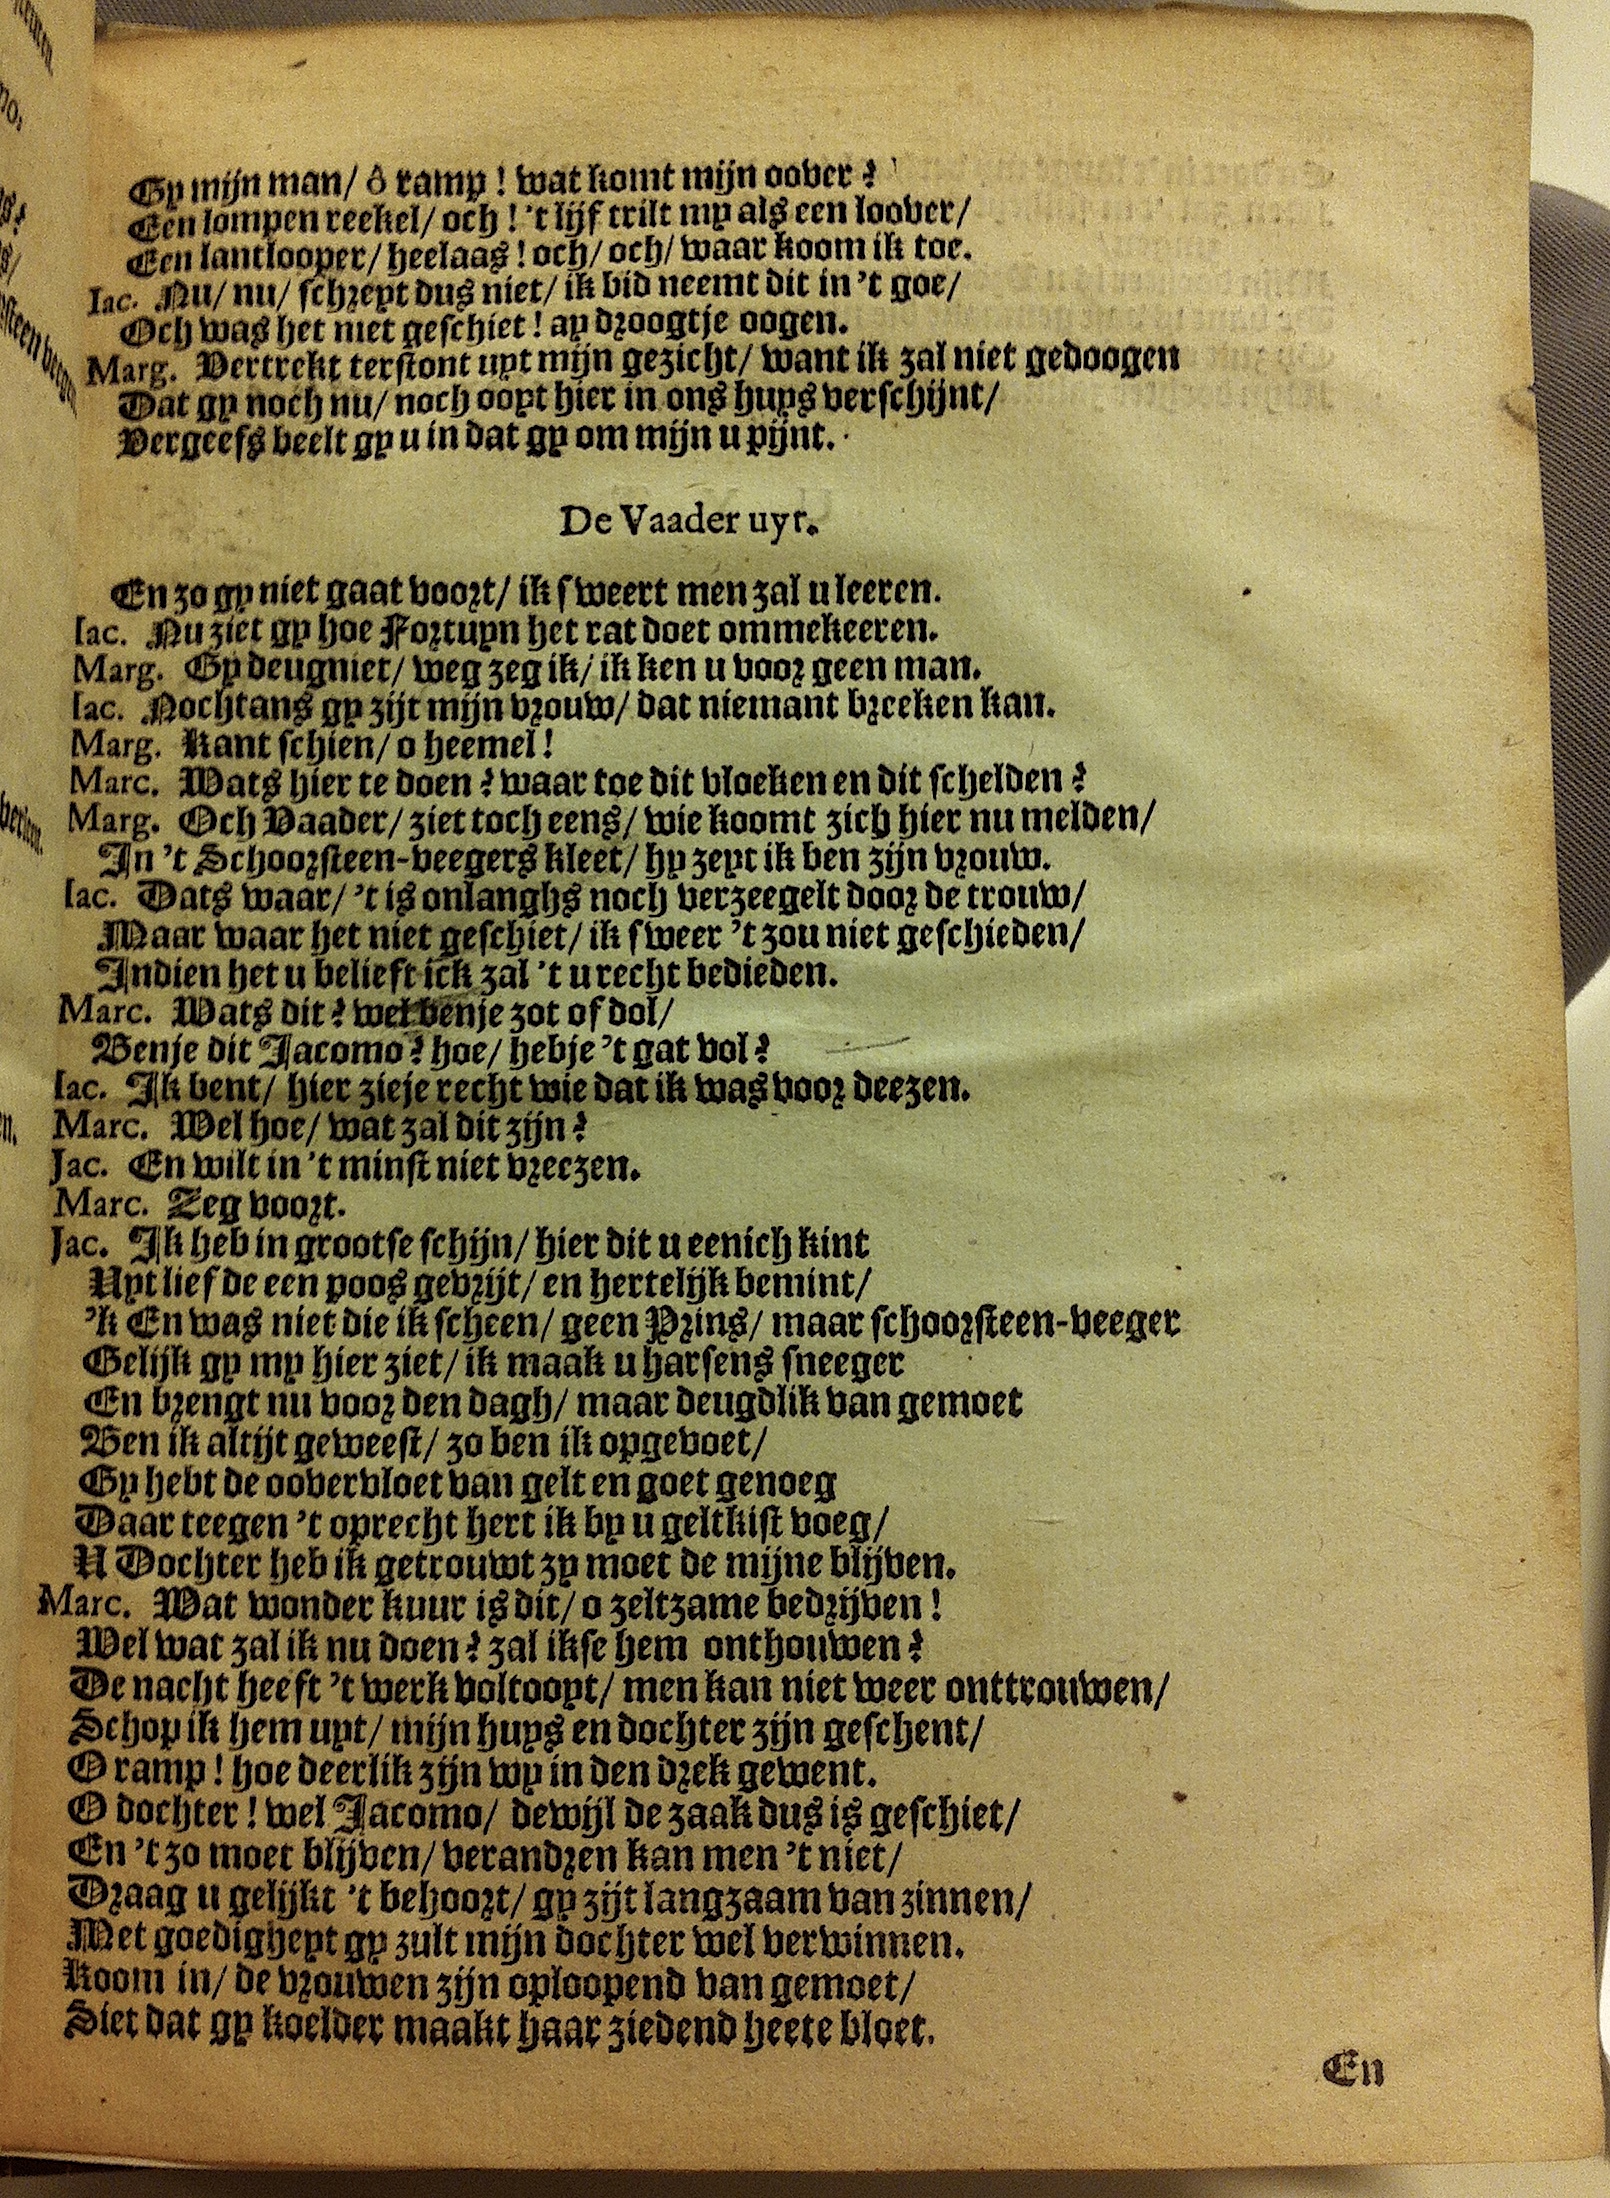 Gy mijn man/ ô ramp! wat komt mijn oover?
Een lompen reekel/ och! 't lijf trilt my als een loover/
Een lantlooper/ heelaas! och/ och/ waar koom ik toe.
Iac. Nu/ nu/ schreyt dus niet/ ik bid neemt dit in 't goe/
Och was het niet geschiet! ay droogtje oogen.
Marg. Vertrekt terstont uyt mijn gezicht/ want ik zal niet gedoogen
Dat gy noch nu/ noch ooyt hier in ons huys verschijnt/
Vergeefs beelt gy u in dat gy om mijn u pijnt.
De Vaader uyt.
En zo gy niet gaat voort/ ik sweert men zal u leeren.
Iac. Nu ziet gy hoe Fortuyn het rat doet ommekeeren.
Marg. Gy deugniet/ weg zeg ik/ ik ken u voor geen man.
Iac. Nochtans gy zijt mijn vrouw/ dat niemant breeken kan.
Marg. Kant schien/ o heemel!
Marc. Wats hier te doen? waar toe dit vloeken en dit schelden?
Marg. Och Vaader/ ziet toch eens/ wie koomt zich hier nu melden/
In 't Schoorsteen-veegers kleet/ hy zeyt ik ben zijn vrouw.
Iac. Dats waar/ 't is onlanghs noch verzeegelt door de trouw/
Maar waar het niet geschiet/ ik sweer 't zou niet geschieden/
Indien het u belieft ick zal 't u recht bedieden.
Marc. Wats dit? wel benje zot of dol/
Benje dit Jacomo? hoe/ hebje 't gat vol?
Iac. Ik bent/ hier zieje recht wie dat ik was voor deezen.
Marc. Wel hoe/ wat zal dit zijn?
Jac. En wilt in 't minst niet vreezen.
Marc. Zeg voort.
Jac. Ik heb in grootse schijn/ hier dit u eenich kint
Uyt liefde een poos gevrijt/ en hertelijk bemint/
'k En was niet die ik scheen/ geen Prins/ maar schoorsteen-veeger
Gelijk gy my hier ziet/ ik maak u harsens sneeger
En brengt nu voor den dagh/ maar deugdlik van gemoet
Ben ik altijt geweest/ zo ben ik opgevoet/
Gy hebt de oovervloet van gelt en goet genoeg
Daar teegen 't oprecht hert ik by u geltkist voeg/
U Dochter heb ik getrouwt zy moet de mijne blijven.
Marc. Wat wonder kuur is dit/ o zeltzame bedrijven!
Wel wat zal ik nu doen? zal ikse hem onthouwen?
De nacht heeft 't werk voltooyt/ men kan niet weer onttrouwen/
Schop ik hem uyt/ mijn huys en dochter zijn geschent/
O ramp! hoe deerlik zijn wy in den drek gewent.
O dochter! wel Jacomo/ dewijl de zaak dus is geschiet/
En 't zo moet blijven/ verandren kan men 't niet/
Draag u gelijkt 't behoort/ gy zijt langzaam van zinnen/
Met goedigheyt gy zult mijn dochter wel verwinnen.
Koom in/ de vrouwen zijn oploopend van gemoet/
Siet dat gy koelder maakt haar ziedend heete bloet.
En